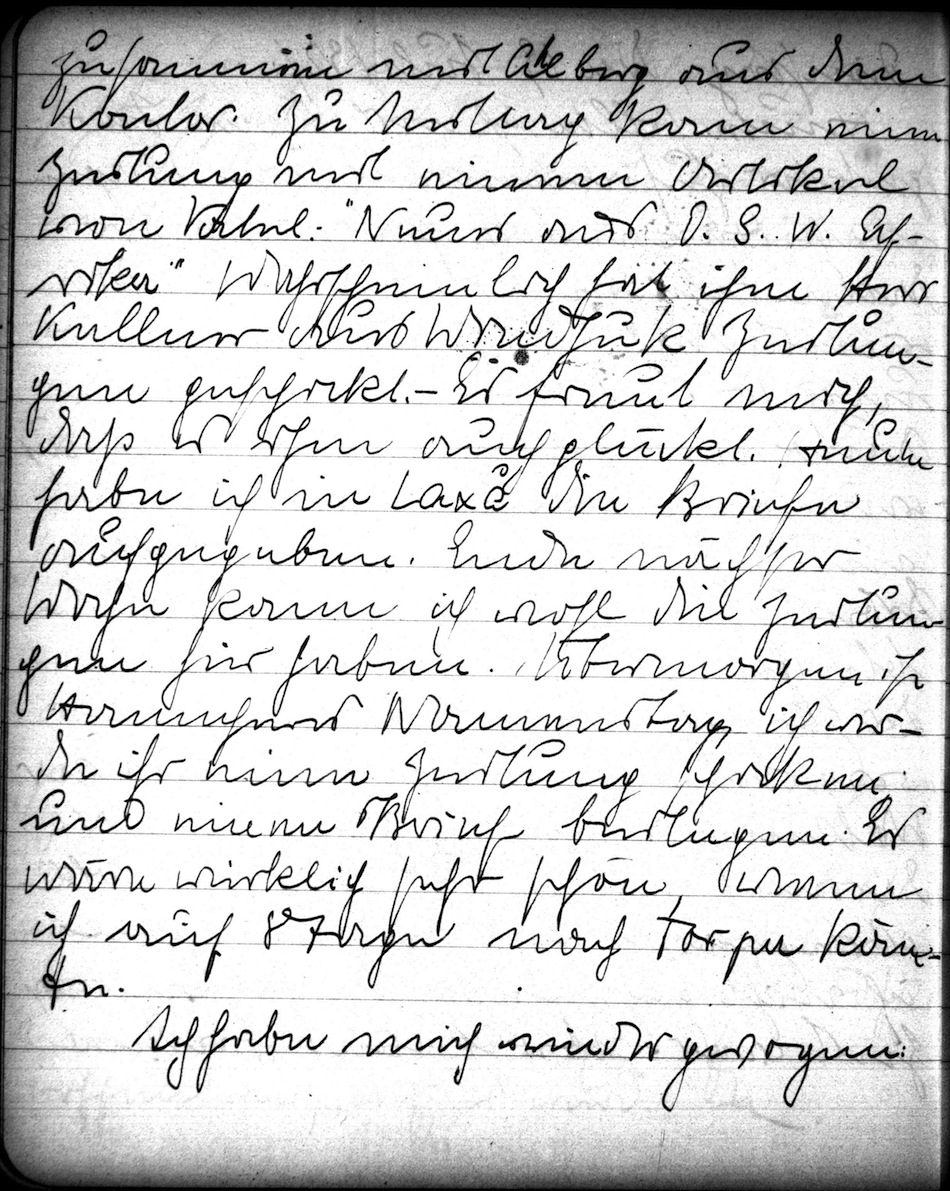 zusammen mit Ahlberg aus dem
Kontor. Zu Mittag kam eine
Zeitung mit einem Artikel
von Vatel: "Neues aus D. S. W. Af-
rika" Wahrscheinlich hat ihm Herr
Kellner aus Windhuk Zeitun-
gen geschickt. - Es freut mich,
daß es ihm auch glückt. Heute
habe ich in Laxå die Briefe
aufgegeben. Ende nächster
Woche kann ich wohl die Zeitun-
gen hier haben. Übermorgen ist
Namenstag, ich wer-
de ihr eine Zeitung schicken
und einen Brief beilegen. Es
wäre wirklich sehr schön, wenn
ich auf 8 Tage nach Torpa käm-
te.
Ich habe mich wieder gewogen: